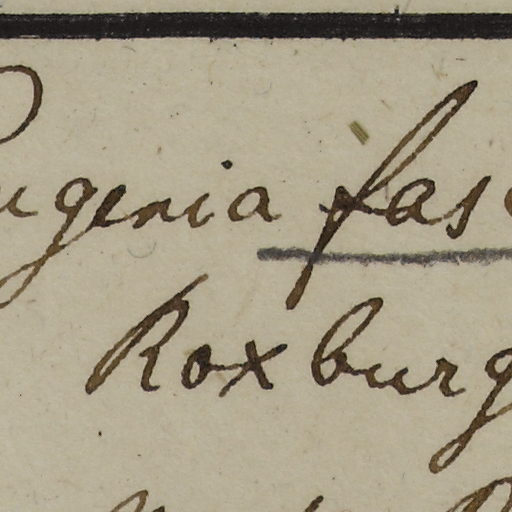 Eugenia fasc
Roxburg